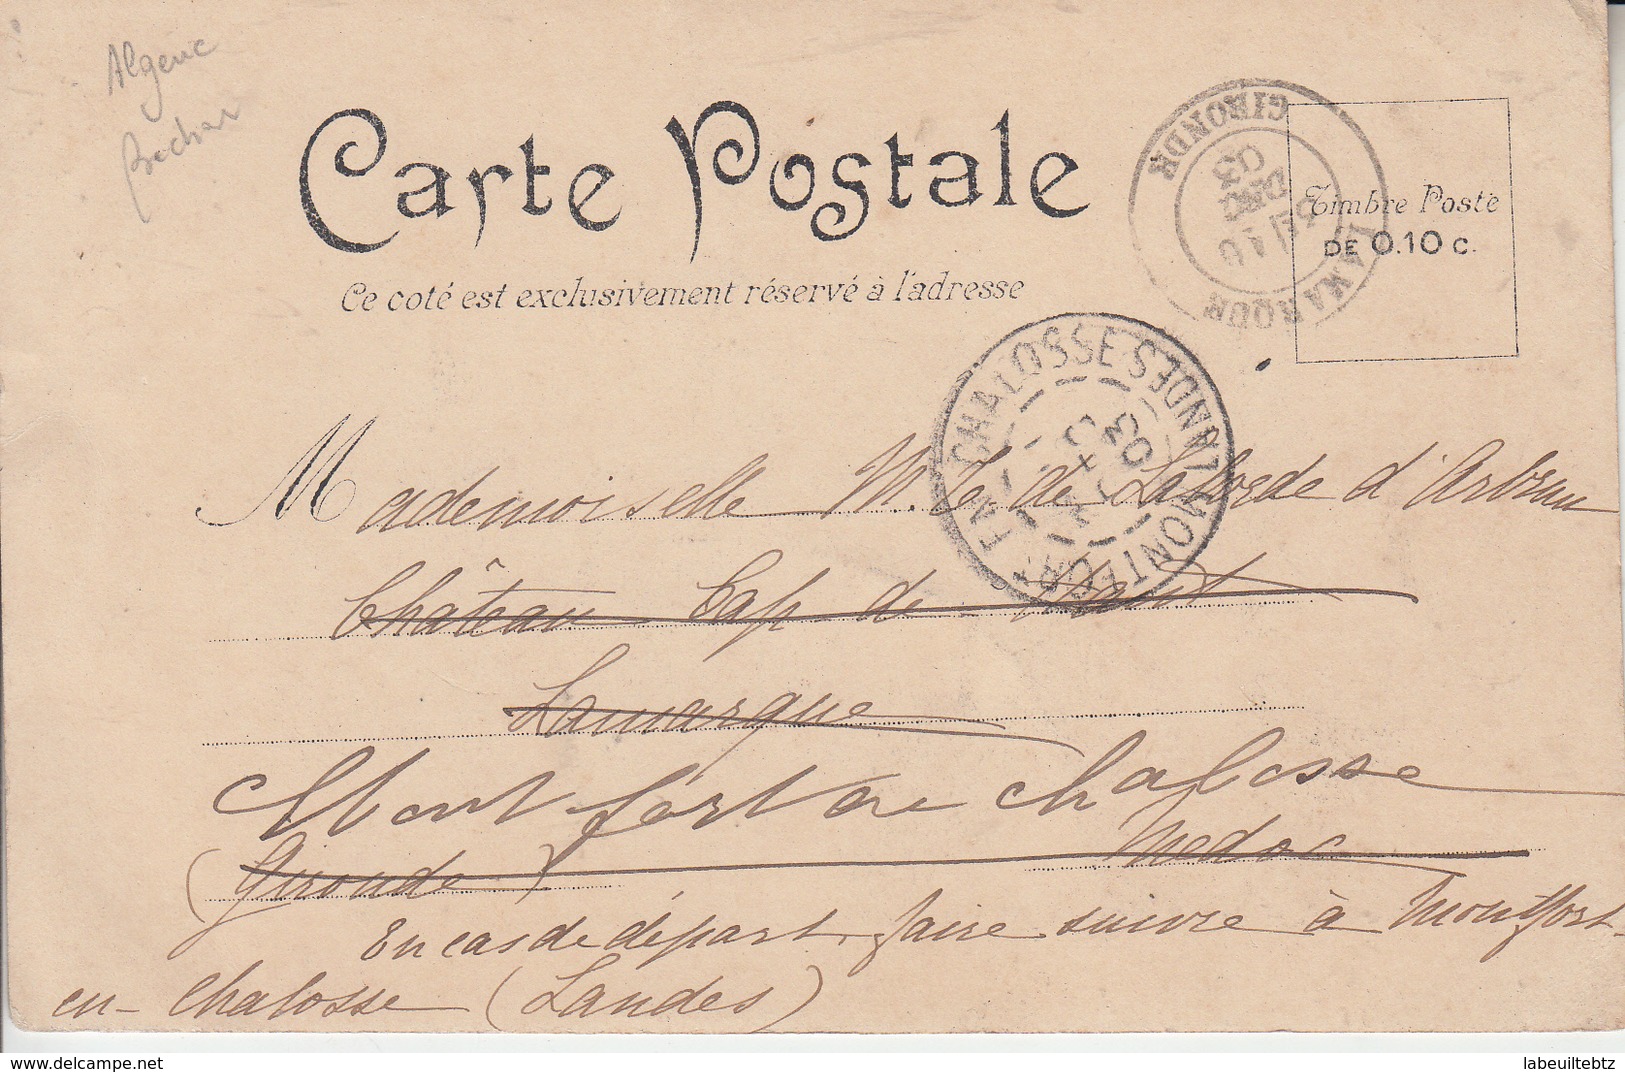 Algerie
Bechar
Carte Postale
Ce coté est exclusivement réservé à l'adresse
Timbre Poste
DE 0.10 c.
LAMARQUE GIRONDE
DEC
03
MONTFORT CHALOSSE LANDES
03
Mademoiselle M. Th de Laborde d'Arbrun
Château Cap de Haut
Lamarque
Montfort en chalosse
(Gironde) Médoc
En cas de départ, faire suivre à Montfort-
en-Chalosse (Landes)
www.delcampe.net labeuiltebtz